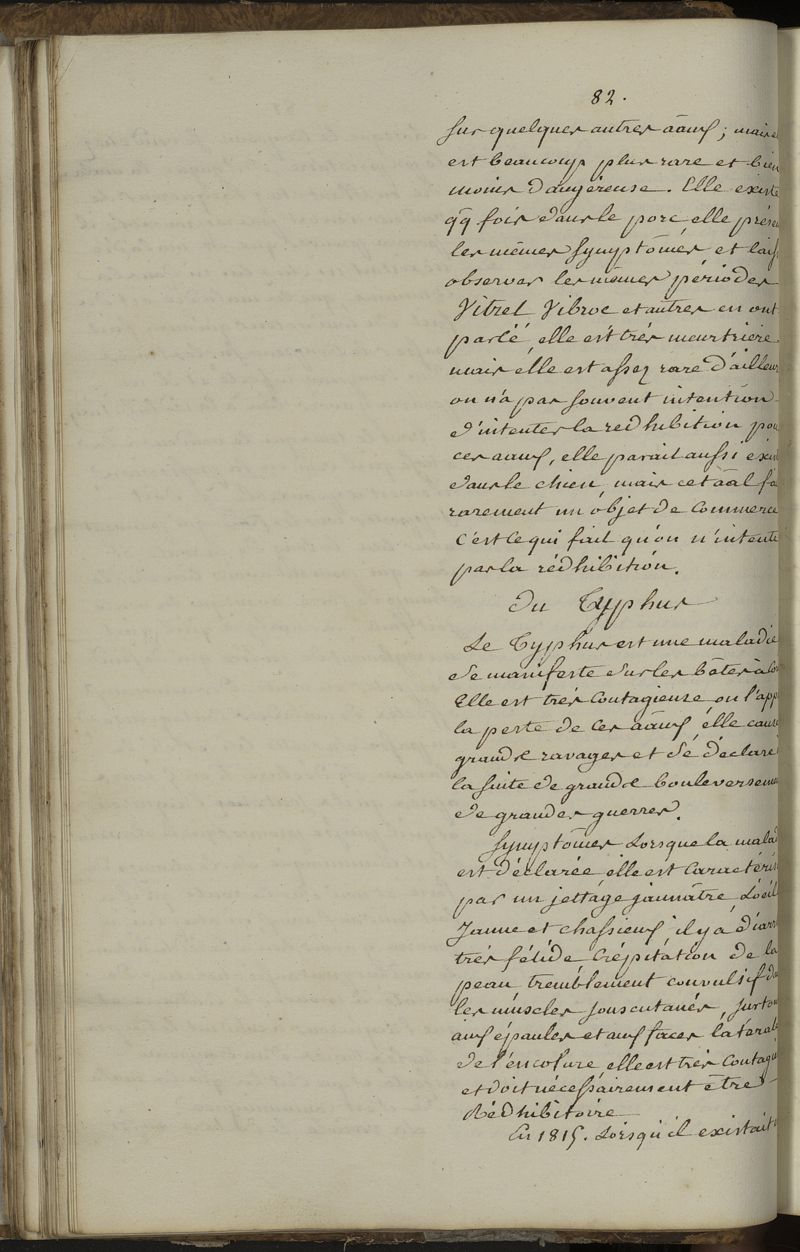 82.
sur quelques autres āaux; mais
est beaucoup plus rare et bien
moins dangéreuse. Elle existe
qq̄ fois dans le porc, elle prése
les mêmes symptômes, et laiss
observer les mêmes périodes
Vitrel Viboc et autres en ont
parlé, elle est trés meurtriere
mais elle est assez rare d'ailleur
on n'a pas souvent intention
d'intenter la redhibition pou
ces aaux, elle parait aussi exis
dans le chien, mais cet āal fa
rarement un objet de Commerce
C'est ce qui fait qu'on n'intente
pas la rédhibitión.
Du Typhus
Le Typhus est une maladie
se manifeste sur les bêtes à co
Elle est trés Contagieuse, on l'app
la peste de ces āaux, elle caus
grands ravages et se déclare
la suite de grands bouleverseme
de grandes guerres.
Symptômes Lorsque la malad
est déclarée, elle est Caractéris
par un jettage jaunâtre, L'oeil
Jaune et chassieux, il y a diarr
trés fétide Crépitation de la
peau, tremblement convulsif da
les muscles sous cutanés, surtou
aux épaules et aux faces latéral
de l'encolure, elle est trés Contagi
et doit nécessairement être
Rédhibitoire
En 1815. Lorsqu'il existait